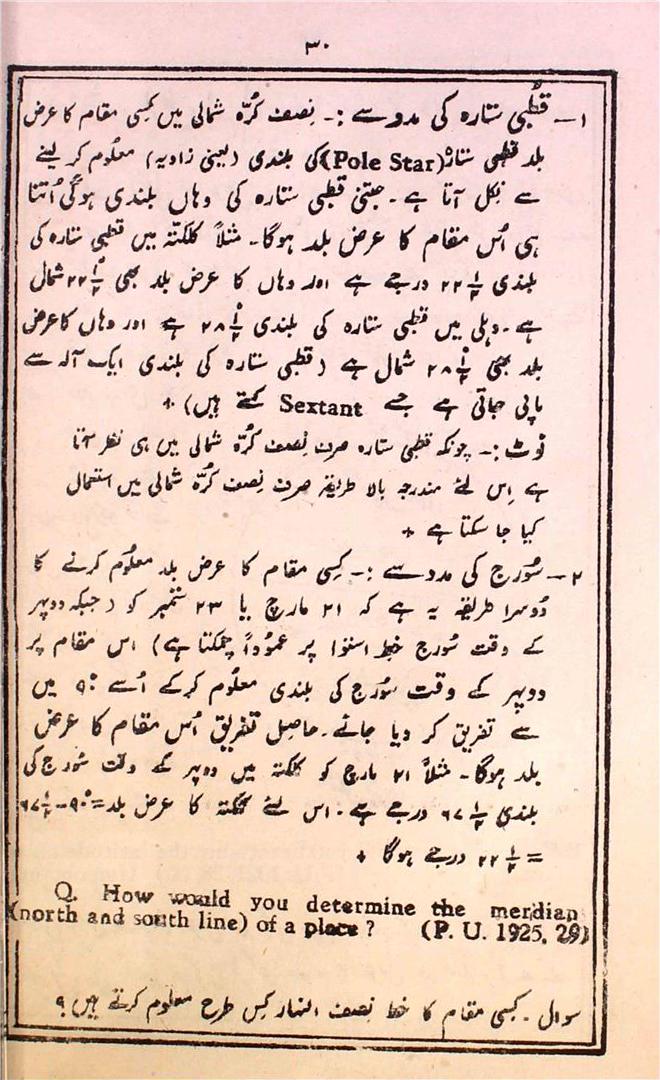 ۳۰
۱ — قُطبی ستارہ کی مدد سے :- نِصف کُرّہ شمالی میں کِسی مقام کا عرض
بلد قطبی ستارہ (Pole Star) کی بلندی (یعنی زاویہ) معلُوم کر لینے
سے نِکل آتا ہے ۔ جتنی قطبی ستارہ کی وہاں بلندی ہوگی اُتنا
ہی اُس مقام کا عرض بلد ہوگا ۔ مثلاً کلکتہ میں قطبی ستارہ کی
بلندی ۲۲½ درجے ہے اور وہاں کا عرض بلد بھی ۲۲½° شمال
ہے ۔ دہلی میں قطبی ستارہ کی بلندی ۲۸½° ہے اور وہاں کا عرض
بلد بھی ۲۸½° شمال ہے (قطبی ستارہ کی بلندی ایک آلہ سے
ماپی جاتی ہے جسے Sextant کہتے ہیں) +
نوٹ :- چونکہ قطبی ستارہ صرف نِصف کُرّہ شمالی میں ہی نظر آتا
ہے اِس لئے مندرجہ بالا طریقہ صرف نِصف کُرّہ شمالی میں استعمال
کیا جا سکتا ہے +
۲ — سُورج کی مدد سے :- کِسی مقام کا عرض بلد معلُوم کرنے کا
دُوسرا طریقہ یہ ہے کہ ۲۱ مارچ یا ۲۳ ستمبر کو (جبکہ دوپہر
کے وقت سُورج خطِ استوا پر عموداً چمکتا ہے) اس مقام پر
دوپہر کے وقت سُورج کی بلندی معلُوم کرکے اُسے ۹۰° میں
سے تفریق کر دیا جائے ۔ حاصِل تفریق اُس مقام کا عرض
بلد ہوگا ۔ مثلاً ۲۱ مارچ کو کلکتہ میں دوپہر کے وقت سُورج کی
بلندی ۶۷½ درجے ہے ۔ اس لئے کلکتہ کا عرض بلد = ۹۰° - ۶۷½
= ۲۲½ درجے ہوگا +
Q. How would you determine the meridian
(north and south line) of a place ? (P. U. 1925, 29)
سوال ۔ کِسی مقام کا خط نِصف النہار کِس طرح معلوم کرتے ہیں ؟